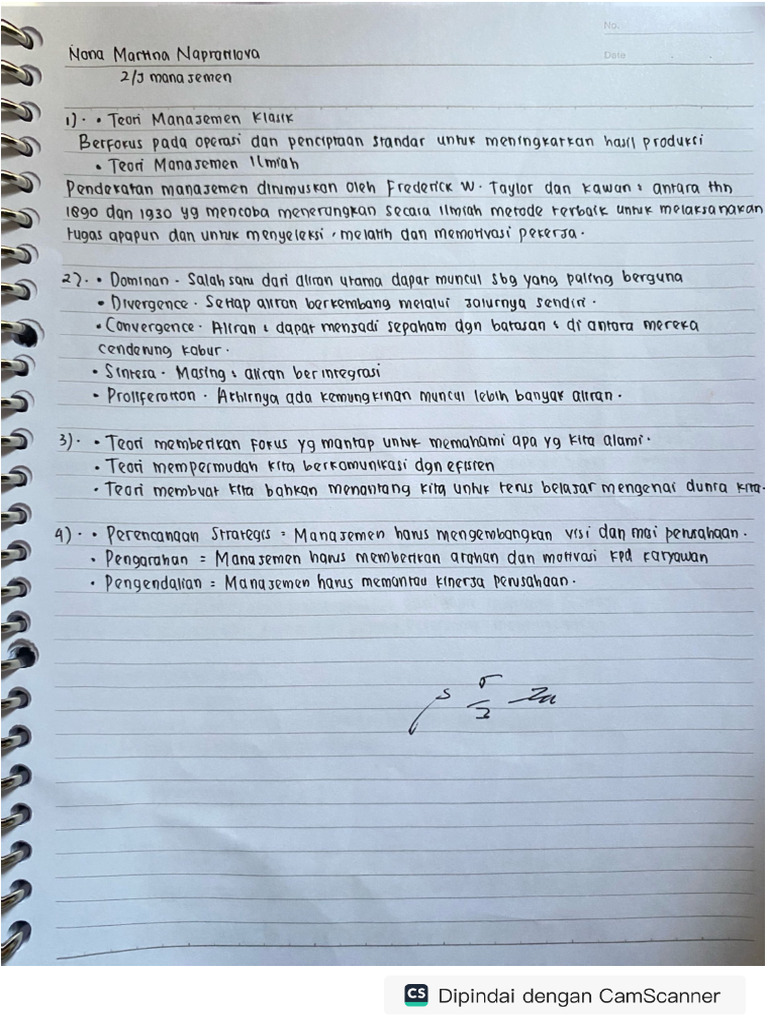 No.
Date
Nona Martina Napratilova
2/J manajemen
1). • Teori Manajemen Klasik
Berfokus pada operasi dan penciptaan standar untuk meningkatkan hasil produksi
• Teori Manajemen Ilmiah
Pendekatan manajemen dirumuskan oleh Frederick W. Taylor dan kawan² antara thn
1890 dan 1930 yg mencoba menerungkan secara ilmiah metode terbaik untuk melaksanakan
tugas apapun dan untuk menyeleksi, melatih dan memotivasi pekerja.
2). • Dominan - Salah satu dari aliran utama dapat muncul sbg yang paling berguna
• Divergence - Setiap aliran berkembang melalui jalurnya sendiri.
• Convergence - Aliran² dapat menjadi sepaham dgn batasan² di antara mereka
cenderung kabur.
• Sintesa - Masing² aliran berintegrasi
• Proliferation - Akhirnya ada kemungkinan muncul lebih banyak aliran.
3). • Teori memberikan fokus yg mantap untuk memahami apa yg kita alami.
• Teori mempermudah kita berkomunikasi dgn efisien
• Teori membuat kita bahkan menantang kita untuk terus belajar mengenai dunia kita.
4). • Perencanaan Strategis = Manajemen harus mengembangkan visi dan misi perusahaan.
• Pengarahan = Manajemen harus memberikan arahan dan motivasi kpd karyawan
• Pengendalian = Manajemen harus memantau kinerja perusahaan.
CS Dipindai dengan CamScanner